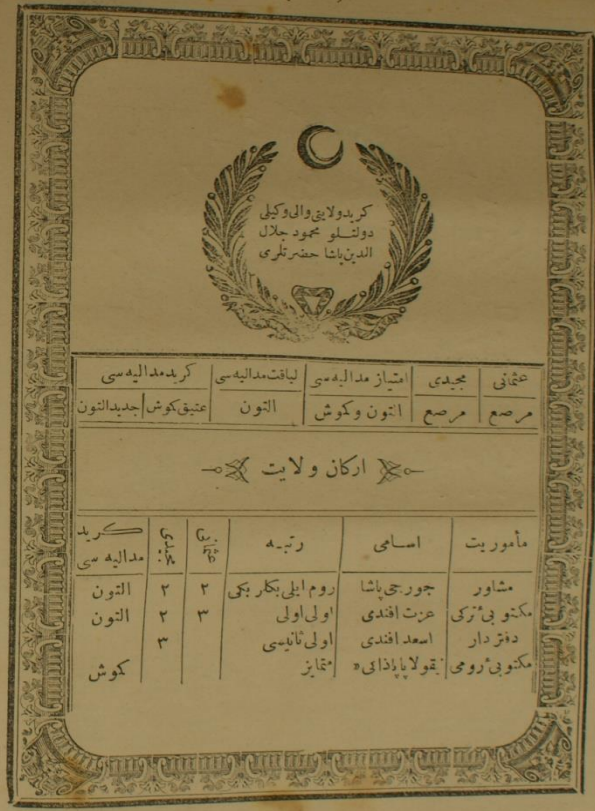 كريد ولايتى والى وكيلى
دولتلو محمود جلال
الدين پاشا حضرتلرى
عثمانى مجيدى امتياز مداليه سى لياقت مداليه سى كريد مداليه سى
مرصع مرصع التون وكموش التون عتيق كموش جديد التون
اركان ولايت
مأموريت اسامى رتبه عثمانى مجيدى كريد مداليه سى
مشاور جورجى پاشا روم ايلى بكلر بكى ٢ ٢ التون
مكتوبىء تركى عزت افندى اولى اولى ٣ ٢ التون
دفتردار اسعد افندى اولى ثانيسى ٣
مكتوبىء رومى نقولا پاپاداكى « متمايز كموش